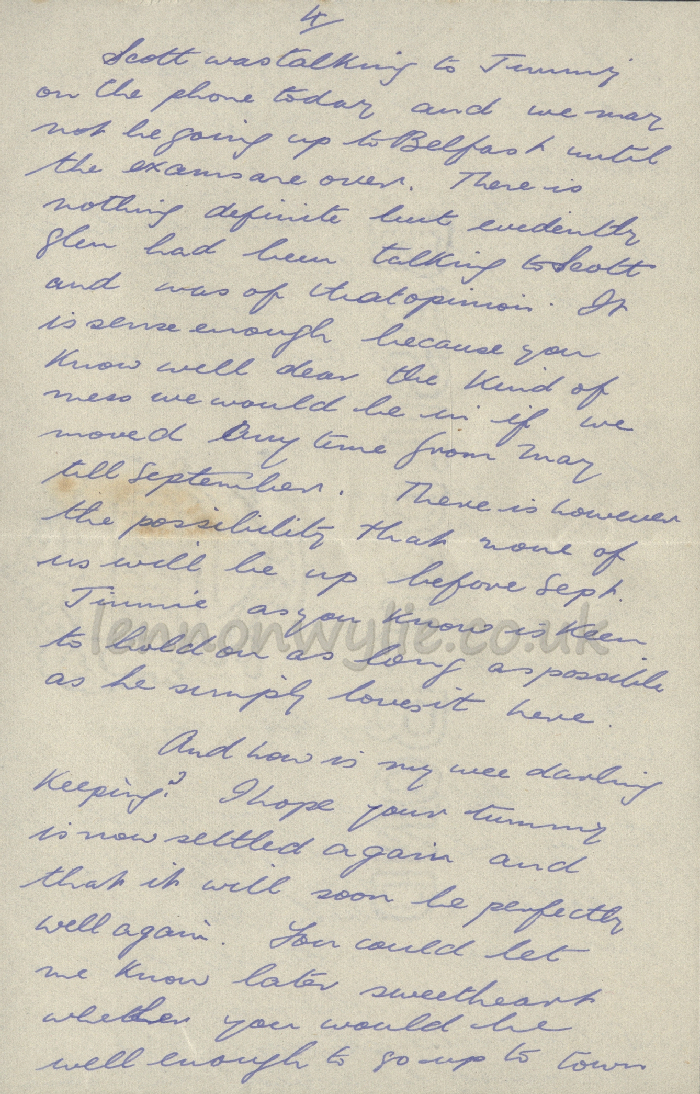 4/
Scott was talking to Jimmy
on the phone today and we may
not be going up to Belfast until
the exams are over. There is
nothing definite but evidently
Glen had been talking to Scott
and was of that opinion. It
is sense enough because you
know well dear the kind of
mess we would be in if we
moved any time from May
till September. There is however
the possibility that none of
us will be up before Sept.
Jimmie as you know is keen
to hold on as long as possible
as he simply loves it here.
And how is my wee darling
keeping? I hope your tummy
is now settled again and
that it will soon be perfectly
well again. You could let
me know later sweetheart
whether you would be
well enough to go up to town
lennonwylie.co.uk